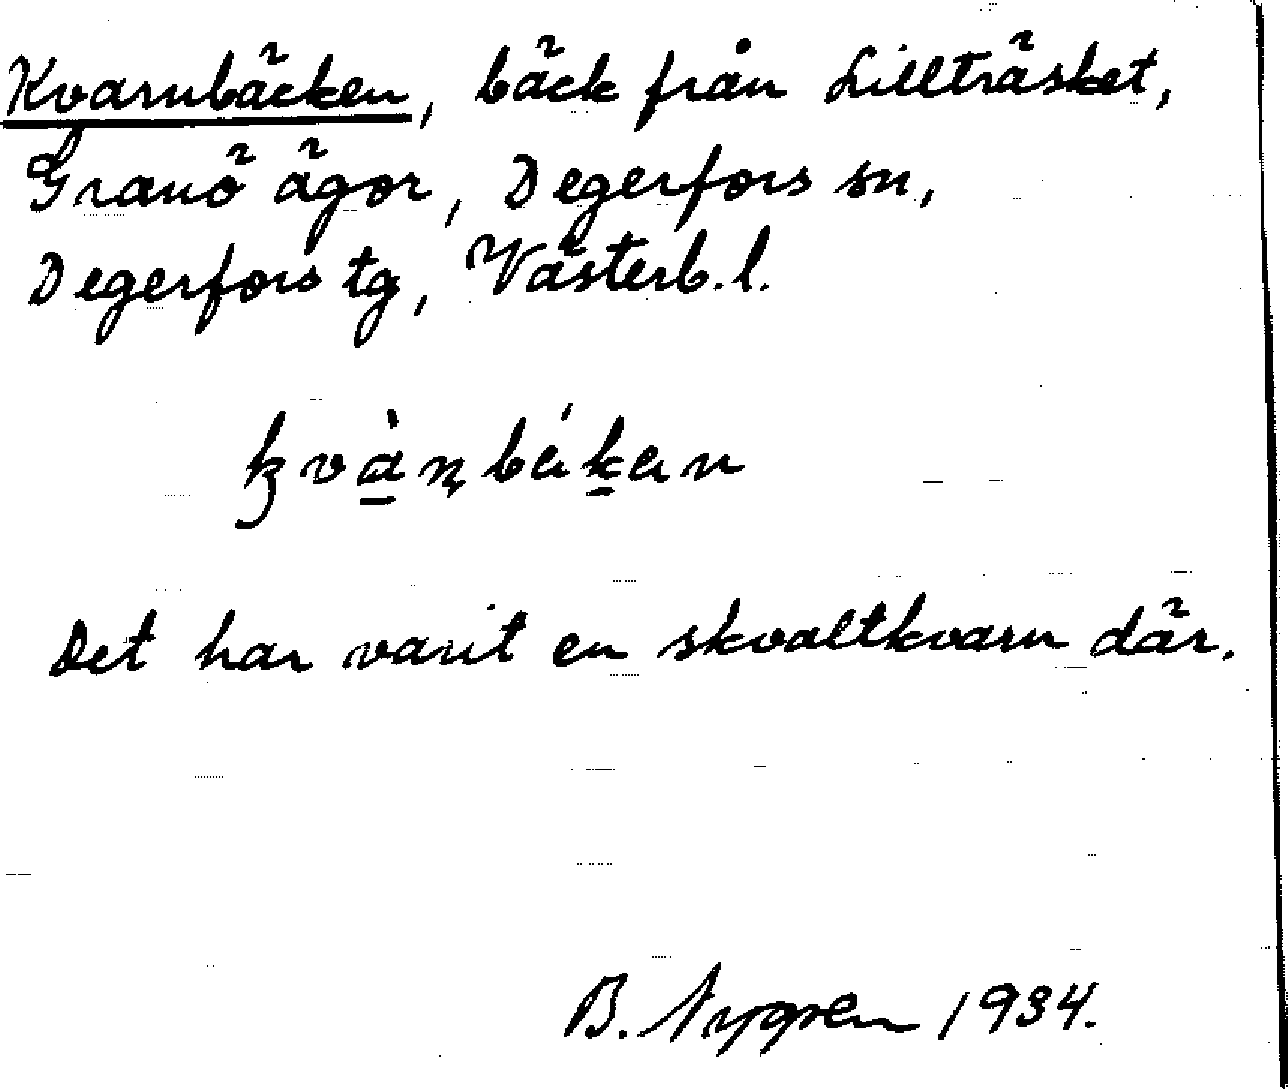 Kvarnbäcken, bäck från Lillträsket,
Granö ägor, Degerfors sn,
Degerfors tg, Västerb. l.
Det har varit en skvaltkvarn där.
B. Nygren 1934.